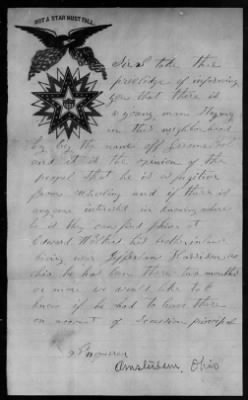 NOT A STAR MUST FALL.
Sir I take this
privledge of informing
you that there is
a young man Staying
in this neighborhood
by the name off
and it is the opinion of the
peopel that he is a fugitive
from Wheeling and if there is
anyone intersted in knowing where
he is they can find him at
Edward his brotherinlaw
living near Jefferson Harrison co
ohio he has been there two months
or more we would like to
know if he had to leave there
on account of Secesion principels
Amsterdam, Ohio